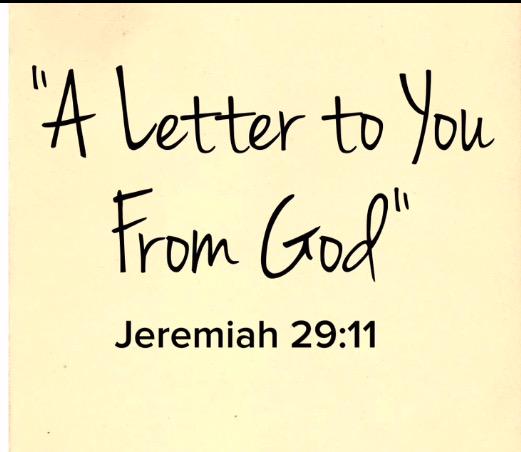 "A Letter to You
From God"
Jeremiah 29:11